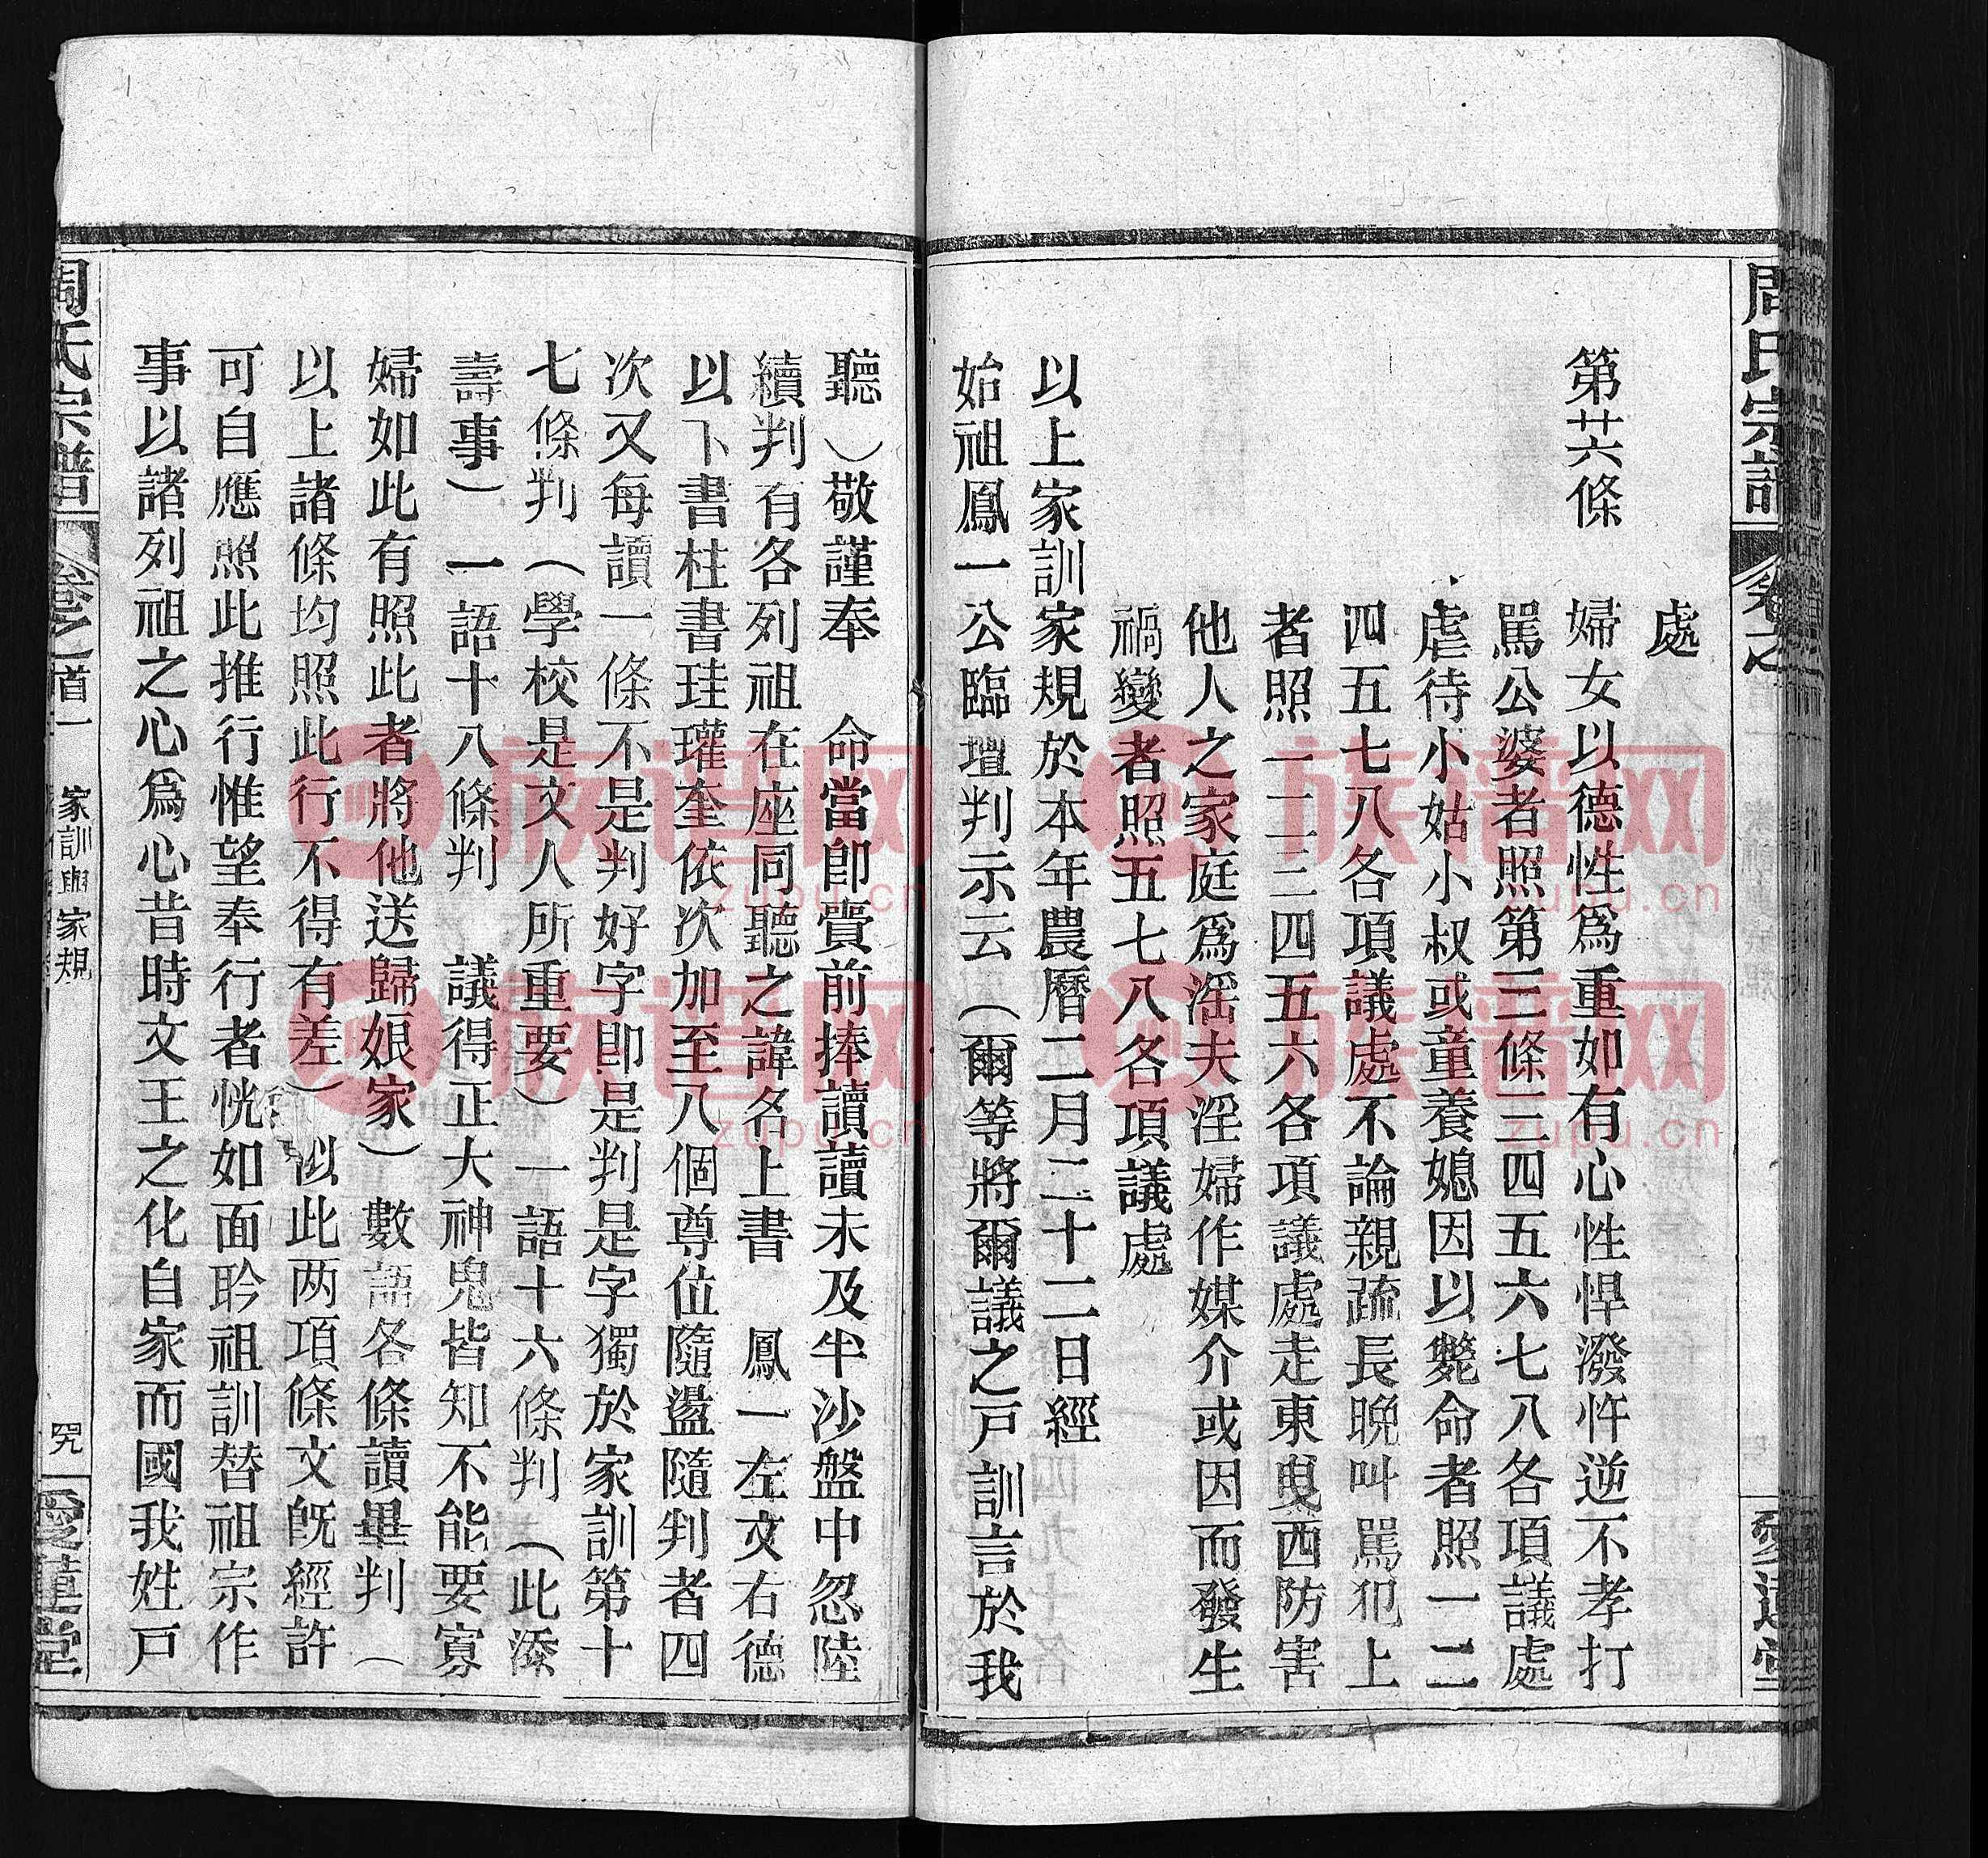 周氏宗譜
卷之
愛蓮堂
處
第廿六條　婦女以德性爲重如有心性悍潑忤逆不孝打
罵公婆者照第三條三四五六七八各項議處
虐待小姑小叔或童養媳因以斃命者照一二
四五七八各項議處不論親疏長晚叫罵犯上
者照一二三四五六各項議處走東叟西防害
他人之家庭爲滛夫淫婦作媒介或因而發生
禍變者照五七八各項議處
以上家訓家規於本年農曆二月二十二日經
始祖鳳一公臨壇判示云（爾等將爾議之戸訓言於我
聽）敬謹奉　命當卽賫前捧讀讀未及半沙盤中忽陸
續判有各列祖在座同聽之諱名上書　鳳一左文右德
以下書柱書珪瓘奎依次加至八個尊位隨盪隨判者四
次又每讀一條不是判好字即是判是字獨於家訓第十
七條判（學校是文人所重要）一語十六條判（此滐
壽事）一語十八條判　議得正大神鬼皆知不能要寡
婦如此有照此者將他送歸娘家）數語各條讀畢判（
以上諸條均照此行不得有差）似此两項條文旣經許
可自應照此推行惟望奉行者恍如面聆祖訓替祖宗作
事以諸列祖之心爲心昔時文王之化自家而國我姓戸
周氏宗譜
卷之首一
家訓與家規
愛蓮堂
族谱网
zupu.cn
族谱网
zupu.cn
族谱网
zupu.cn
族谱网
zupu.cn